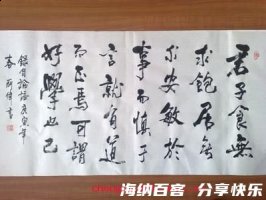 君子食無
求飽居無
求安敏於
事而慎于
言就有道
而正焉可謂
好學也已
錄自論語庚寅年
春
书
海纳百客 分享快乐